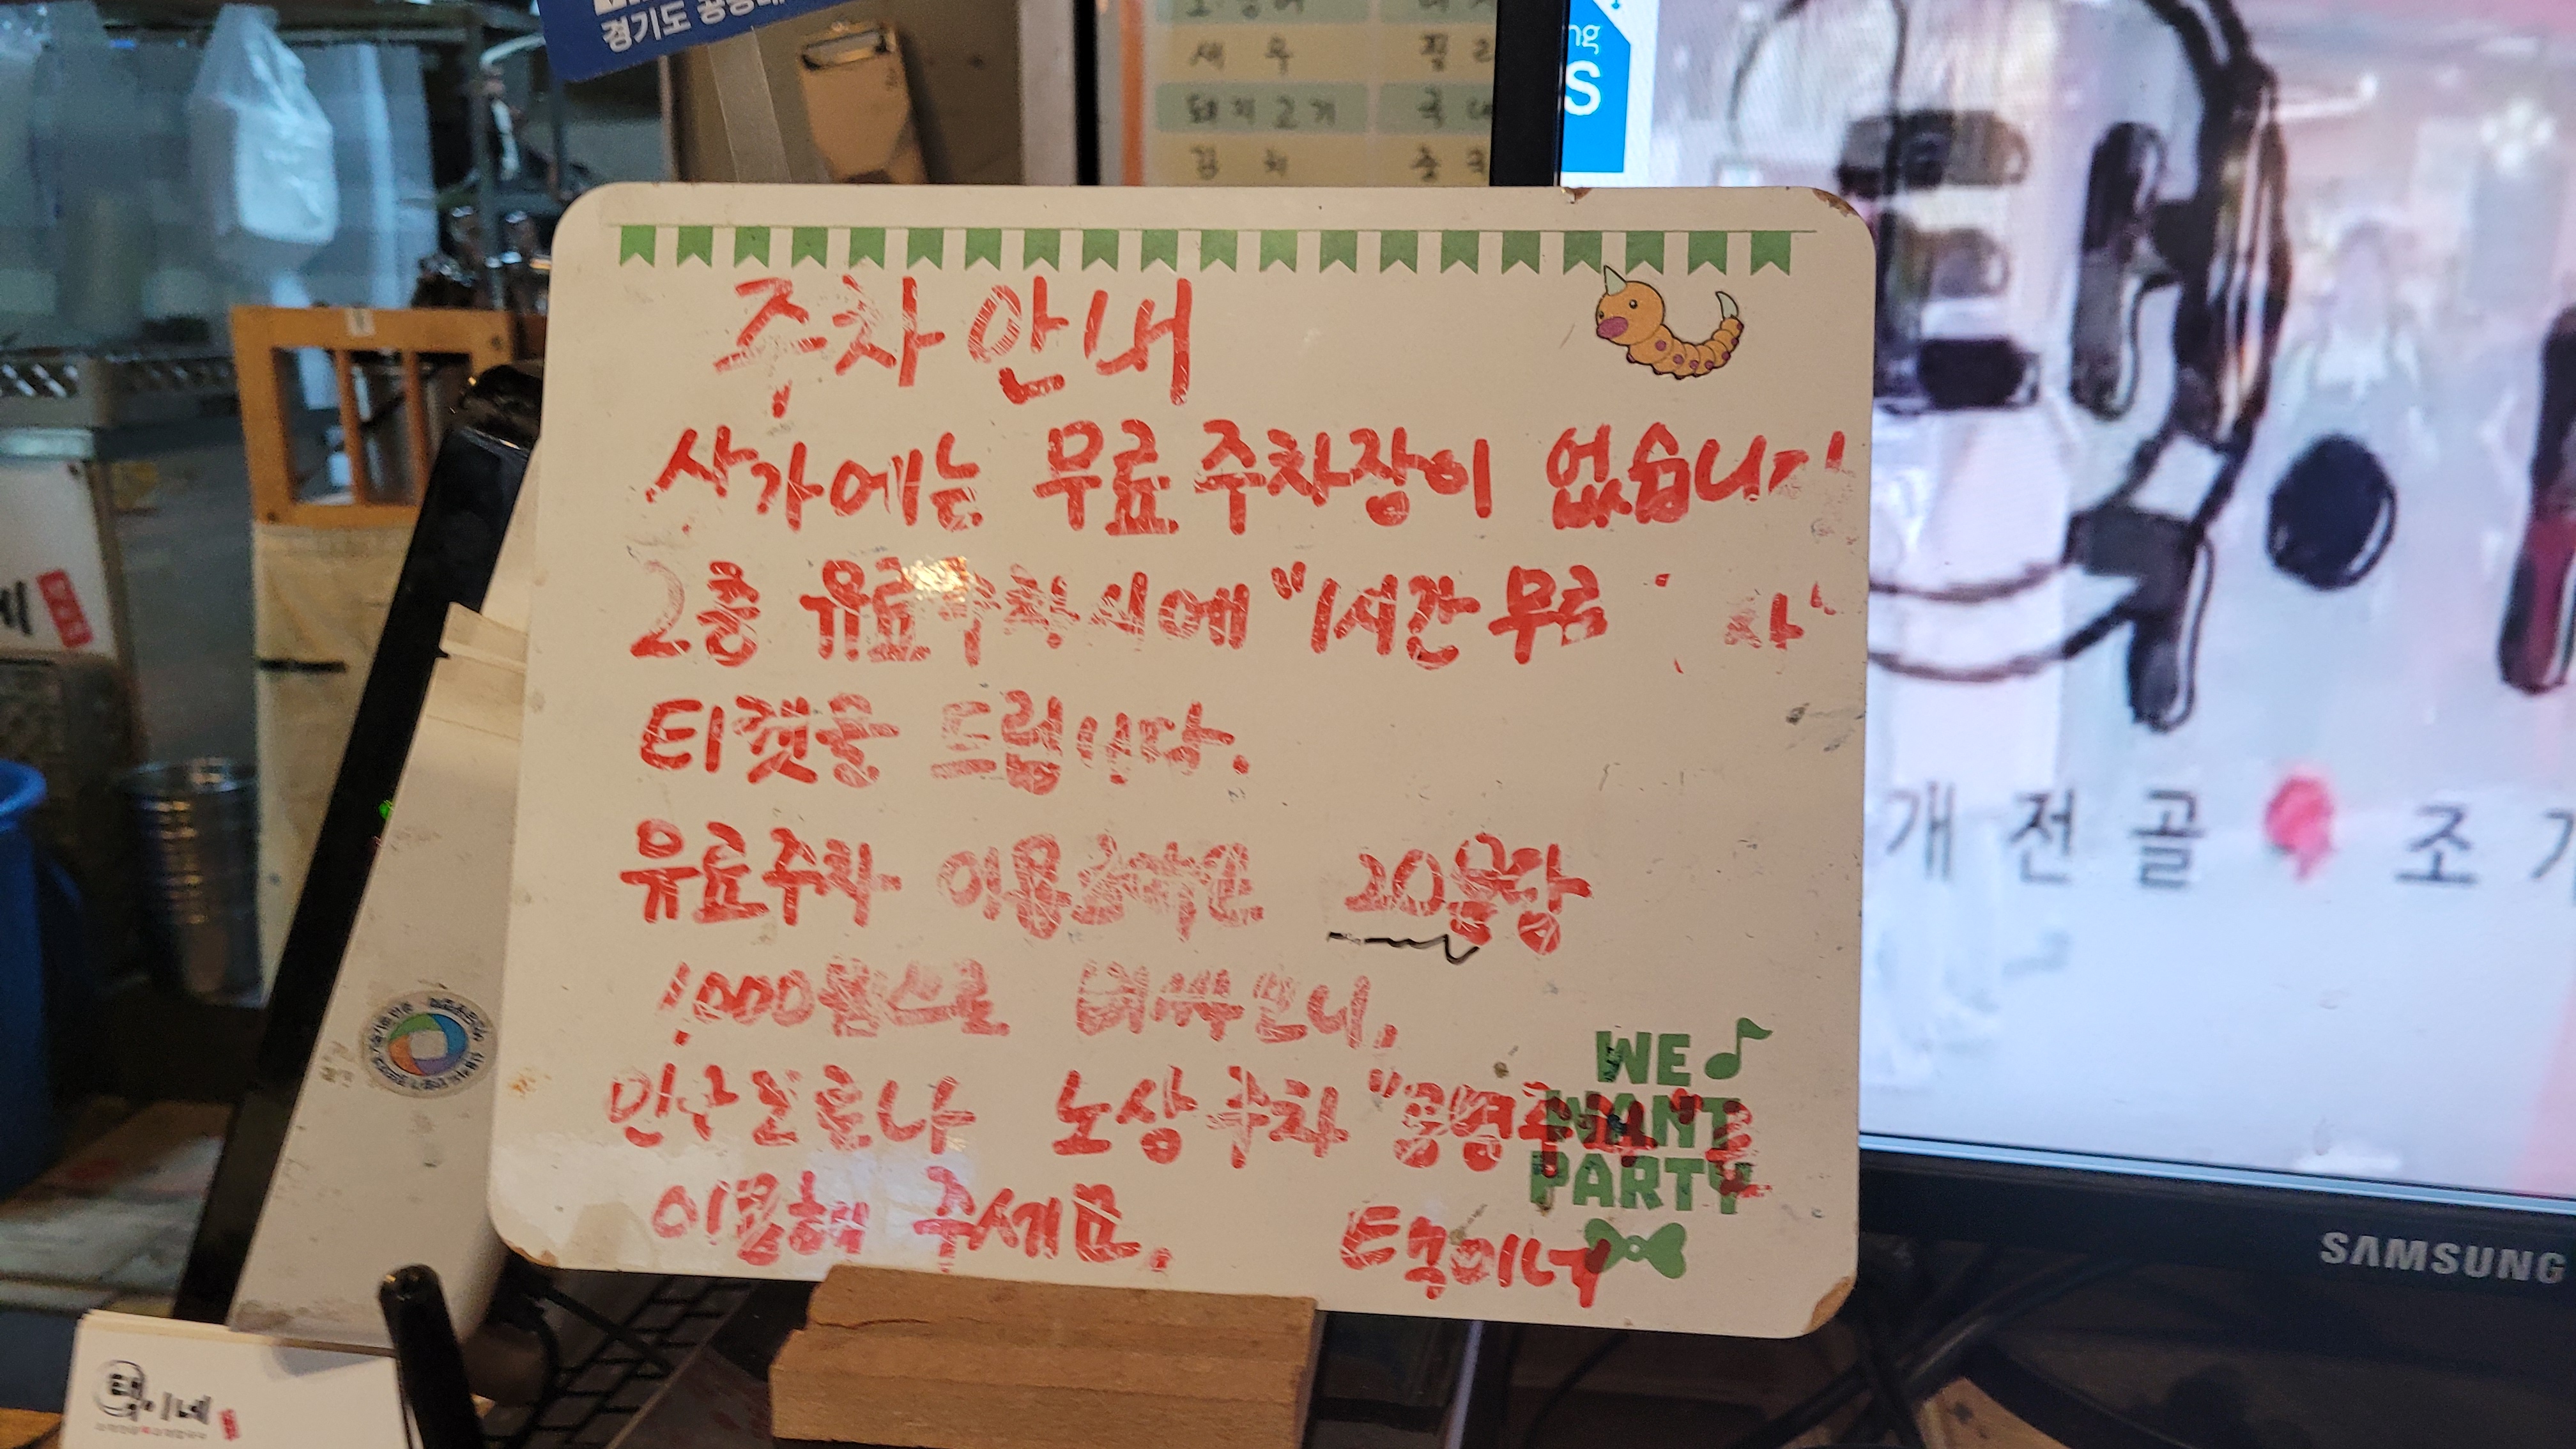 경기도
새 우
돼지고기
김 치
S
주차안내
상가에는 무료주차장이 없습니다
2층 유료주차시에 "1시간 무료
티켓을 드립니다.
유료주차 이용금액은 20분당
1,000원으로 비싸오니,
인근도로나 노상주차 "공영주차"를
이용해 주세요. 택이네
WE
WANT
PARTY
개 전 골 조
SAMSUNG
택이네